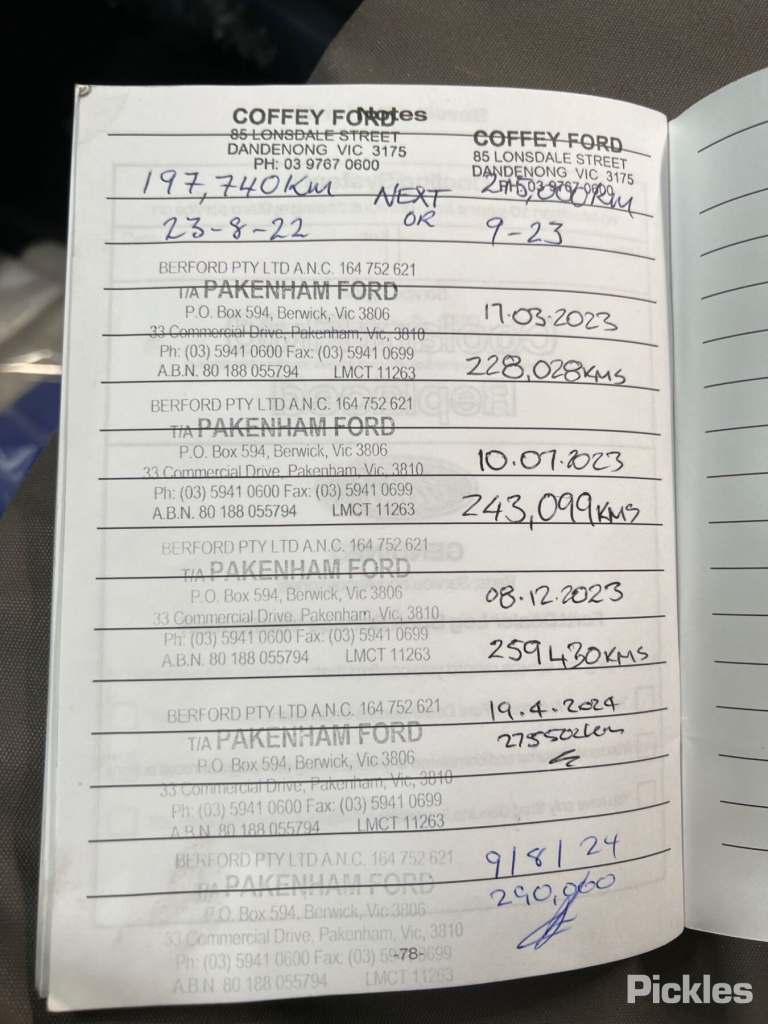 Notes
COFFEY FORD
85 LONSDALE STREET
DANDENONG VIC 3175
PH: 03 9767 0600
COFFEY FORD
85 LONSDALE STREET
DANDENONG VIC 3175
PH: 03 9767 0600
197,740KM NEXT 215,000KM
23-8-22 OR 9-23
BERFORD PTY LTD A.N.C. 164 752 621
T/A PAKENHAM FORD
P.O. Box 594, Berwick, Vic 3806
17.03.2023
33 Commercial Drive, Pakenham, Vic, 3810
Ph: (03) 5941 0600 Fax: (03) 5941 0699
A.B.N. 80 188 055794 LMCT 11263
228,028KMS
BERFORD PTY LTD A.N.C. 164 752 621
T/A PAKENHAM FORD
P.O. Box 594, Berwick, Vic 3806
10.07.2023
33 Commercial Drive, Pakenham, Vic, 3810
Ph: (03) 5941 0600 Fax: (03) 5941 0699
A.B.N. 80 188 055794 LMCT 11263
243,099KMS
BERFORD PTY LTD A.N.C. 164 752 621
T/A PAKENHAM FORD
P.O. Box 594, Berwick, Vic 3806
08.12.2023
33 Commercial Drive, Pakenham, Vic, 3810
Ph: (03) 5941 0600 Fax: (03) 5941 0699
A.B.N. 80 188 055794 LMCT 11263
259430KMS
BERFORD PTY LTD A.N.C. 164 752 621
19.4.2024
T/A PAKENHAM FORD
275502km
P.O. Box 594, Berwick, Vic 3806
33 Commercial Drive, Pakenham, Vic, 3810
Ph: (03) 5941 0600 Fax: (03) 5941 0699
A.B.N. 80 188 055794 LMCT 11263
BERFORD PTY LTD A.N.C. 164 752 621
9/8/24
T/A PAKENHAM FORD
290,000
P.O. Box 594, Berwick, Vic 3806
33 Commercial Drive, Pakenham, Vic, 3810
Ph: (03) 5941 0600 Fax: (03) 5941 0699
-78-
A.B.N. 80 188 055794 LMCT 11263
Pickles